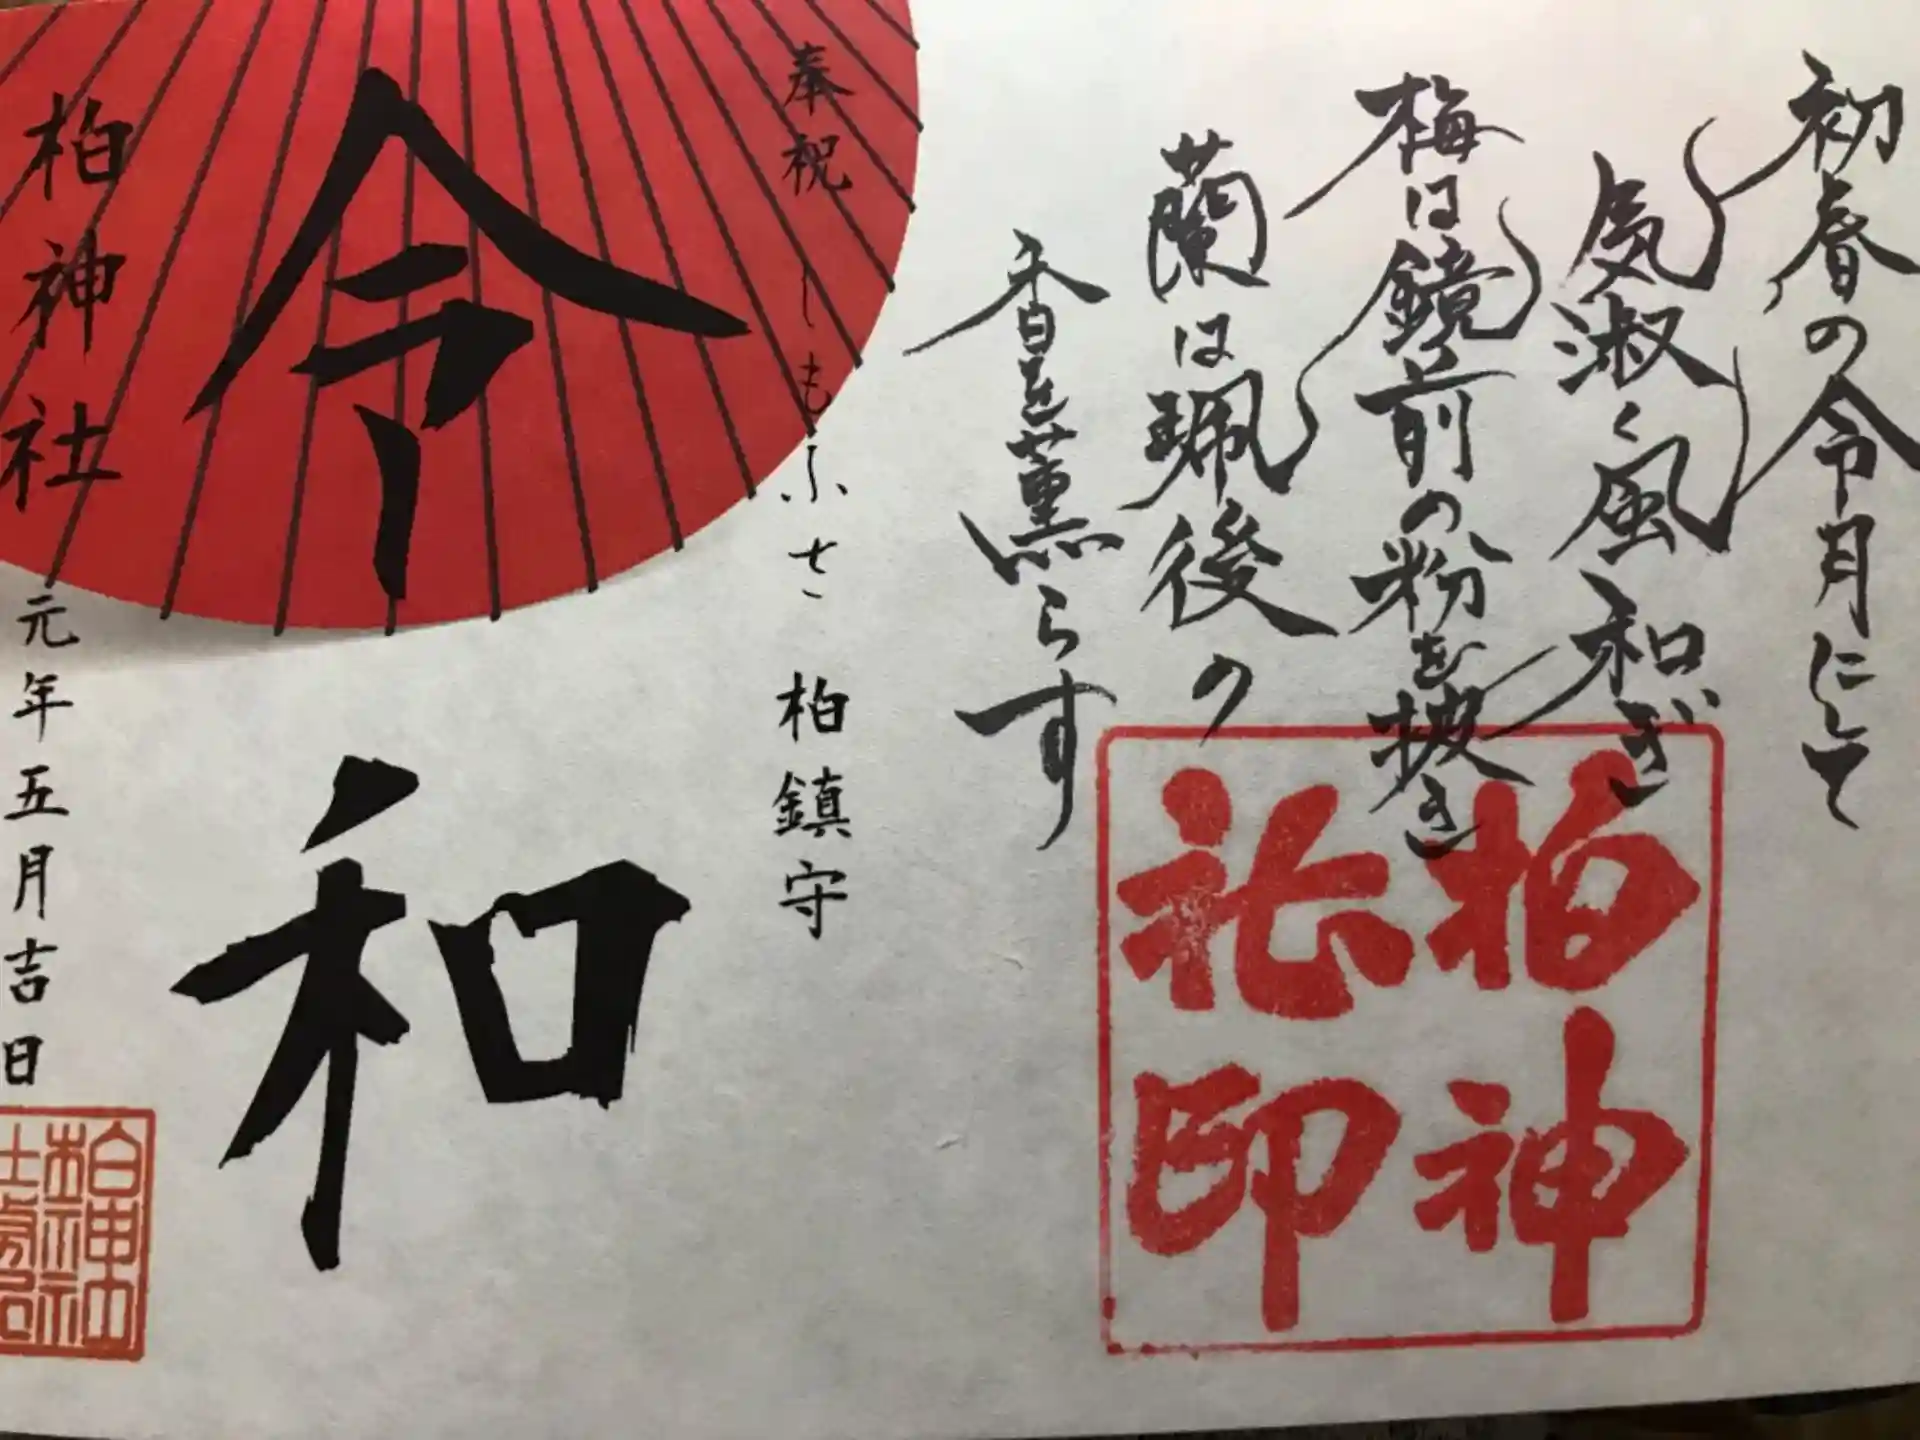 初春の令月にして
気淑く風和ぎ
梅は鏡前の粉を披き
蘭は珮後の
香を薫らす
柏神
社印
奉祝 しもふさ 柏鎮守
令和
柏神社
元年五月吉日
柏神
社